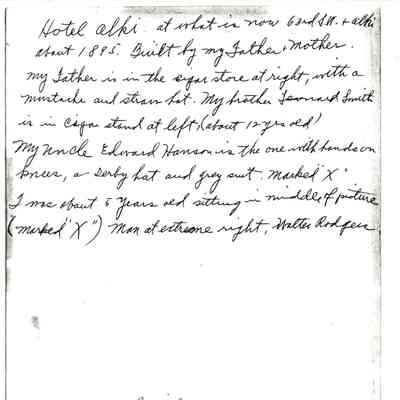 Hotel Alki. at what is now 63rd SW. + Alki
about 1895. Built by my Father & Mother.
my Father is in the cigar store at right, with a
mustache and straw hat. My brother Leonard Smith
is in Cigar stand at left, (about 12 yrs old)
My Uncle Edward Hanson is the one with hands on
knees, a Derby hat and grey suit. marked "X"
I was about 5 years old sitting in middle of picture
(marked "X") Man at extreme right, Walter Rodgers